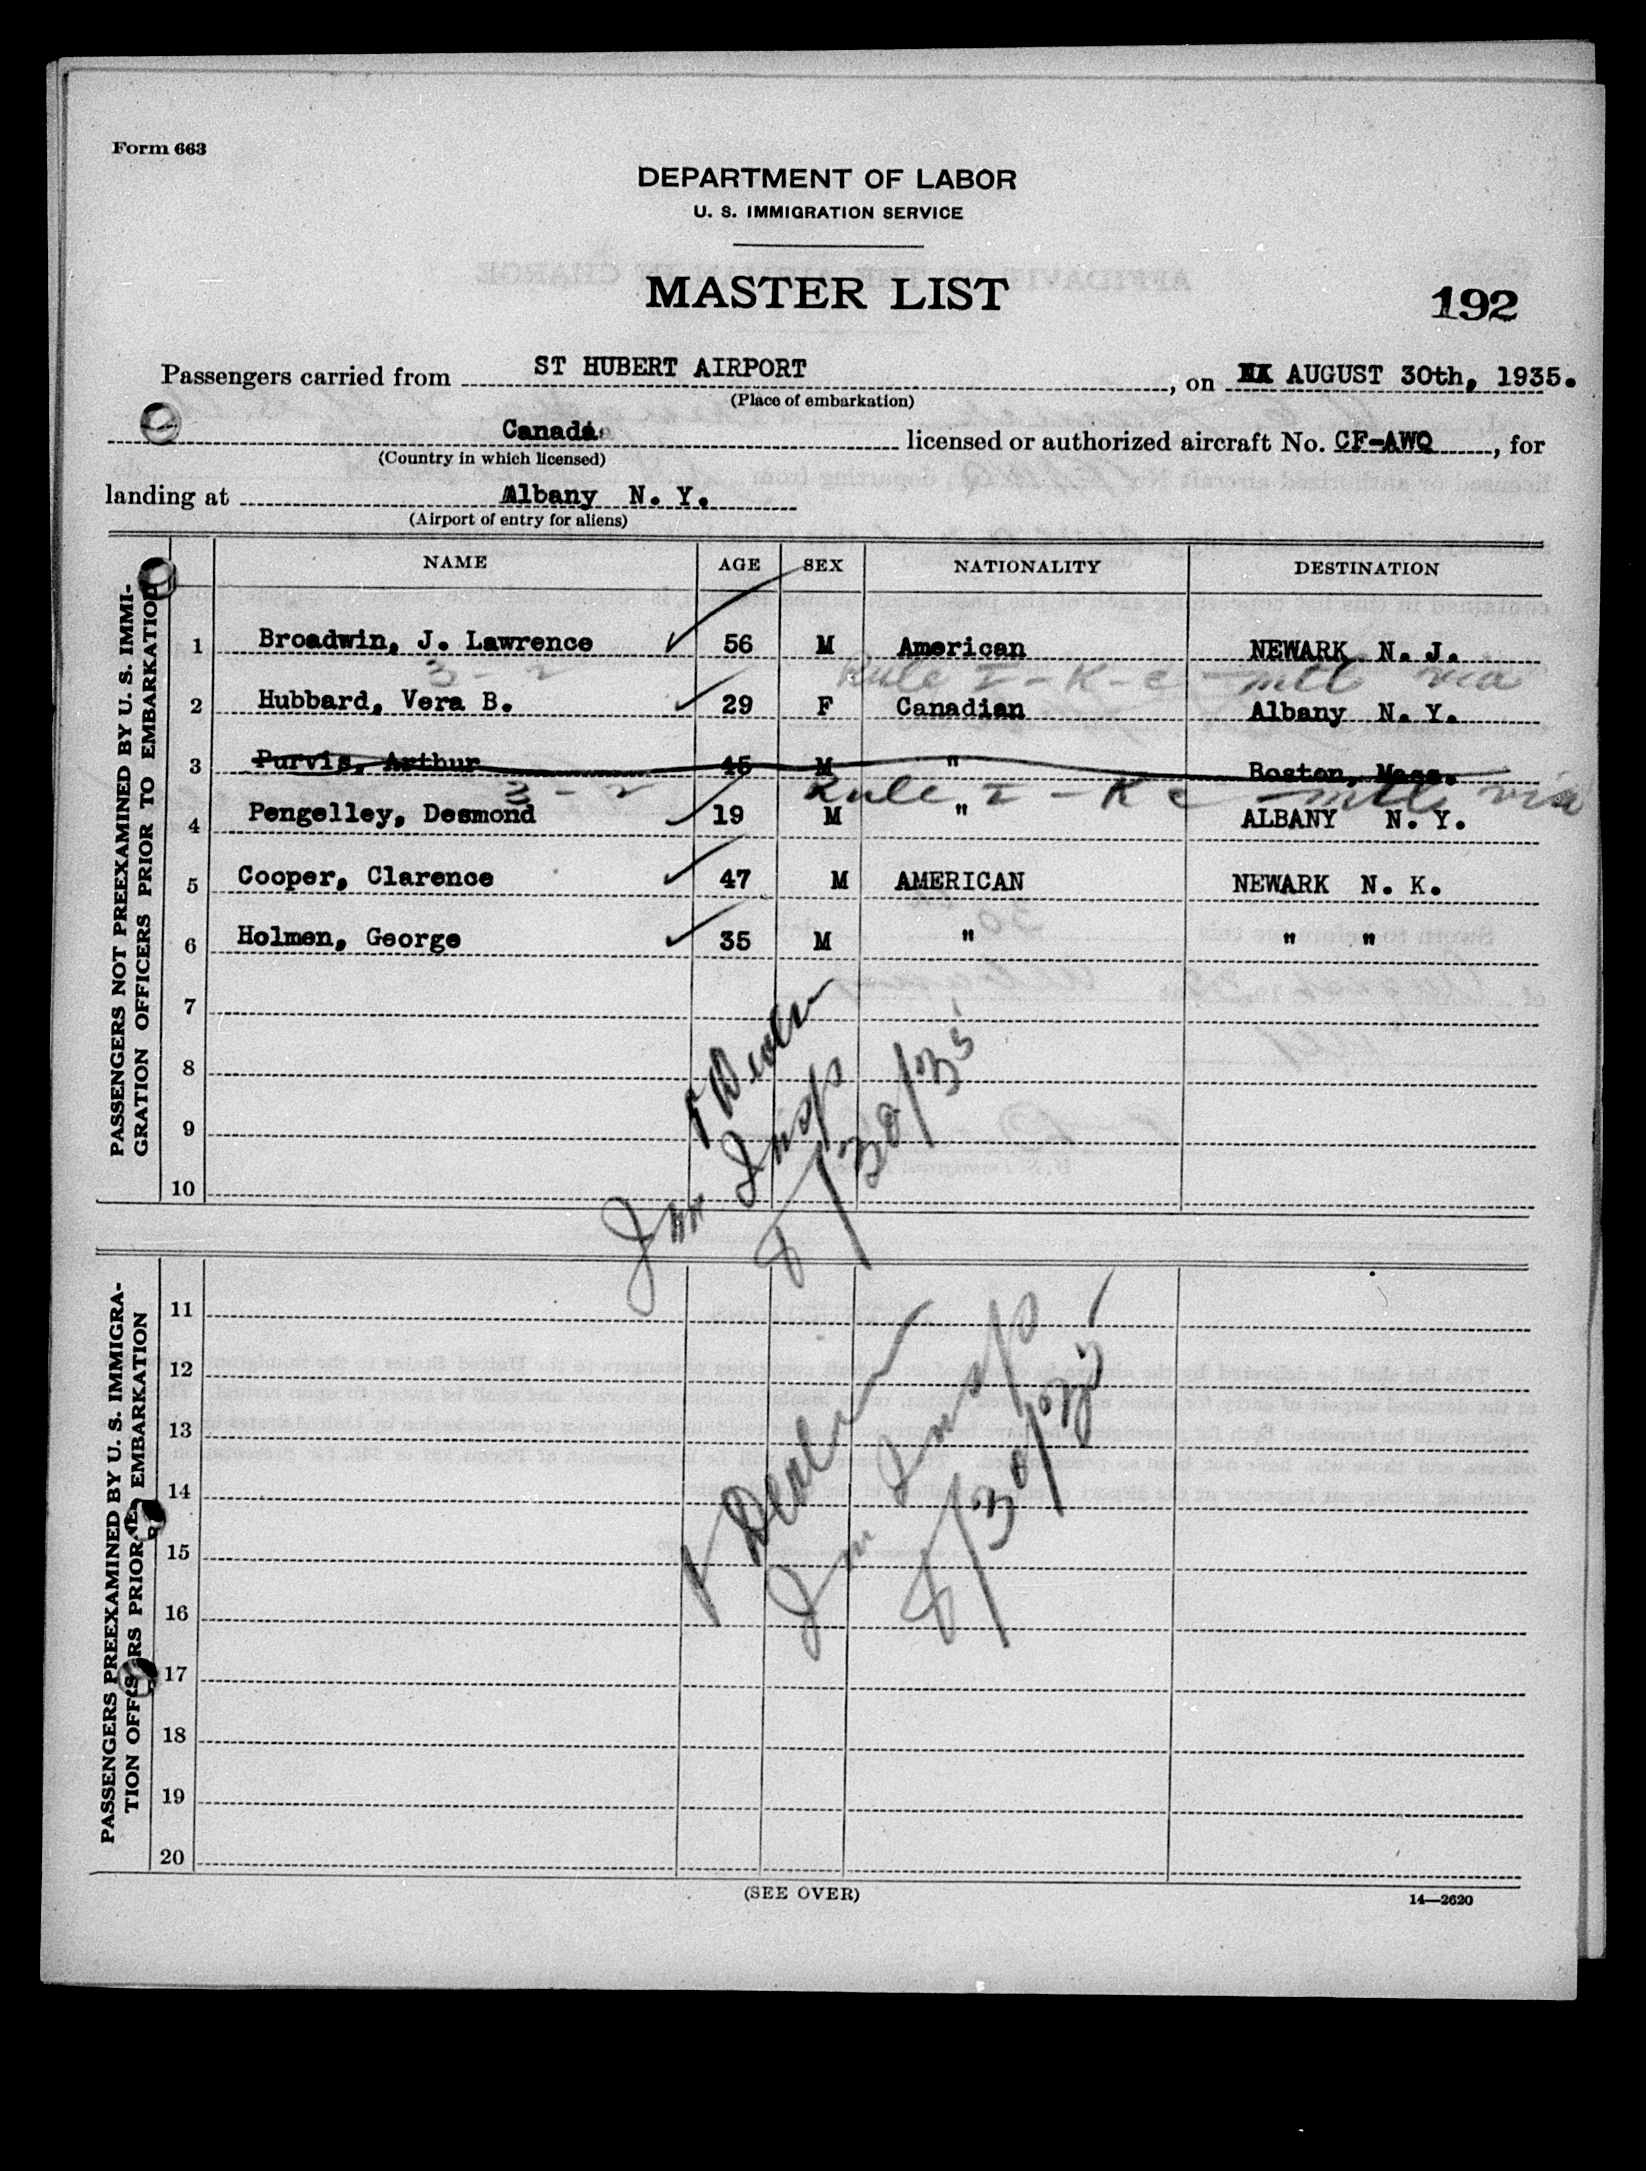 Form 663
DEPARTMENT OF LABOR
U. S. IMMIGRATION SERVICE
MASTER LIST
192
Passengers carried from ST HUBERT AIRPORT, on AUGUST 30th, 1935.
(Place of embarkation)
Canada licensed or authorized aircraft No. CF-AWQ, for
(Country in which licensed)
landing at Albany N. Y.
(Airport of entry for aliens)
PASSENGERS NOT PREEXAMINED BY U. S. IMMI-
GRATION OFFICERS PRIOR TO EMBARKATION
NAME AGE SEX NATIONALITY DESTINATION
1 Broadwin, J. Lawrence 56 M American NEWARK N. J.
3 - 2 Rule I - K - c - mtl via
2 Hubbard, Vera B. 29 F Canadian Albany N. Y.
3 Purvis, Arthur 45 M " Boston, Mass.
3 - 2 Rule I - K c - mtl via
4 Pengelley, Desmond 19 M " ALBANY N. Y.
5 Cooper, Clarence 47 M AMERICAN NEWARK N. K.
6 Holmen, George 35 M " " "
7
8
9
10
Imm Insp
8/30/35
PASSENGERS PREEXAMINED BY U. S. IMMIGRA-
TION OFFICERS PRIOR TO EMBARKATION
11
12
13
14
15
16
17
18
19
20
Im Insp
8/30/35
(SEE OVER)
14—2620